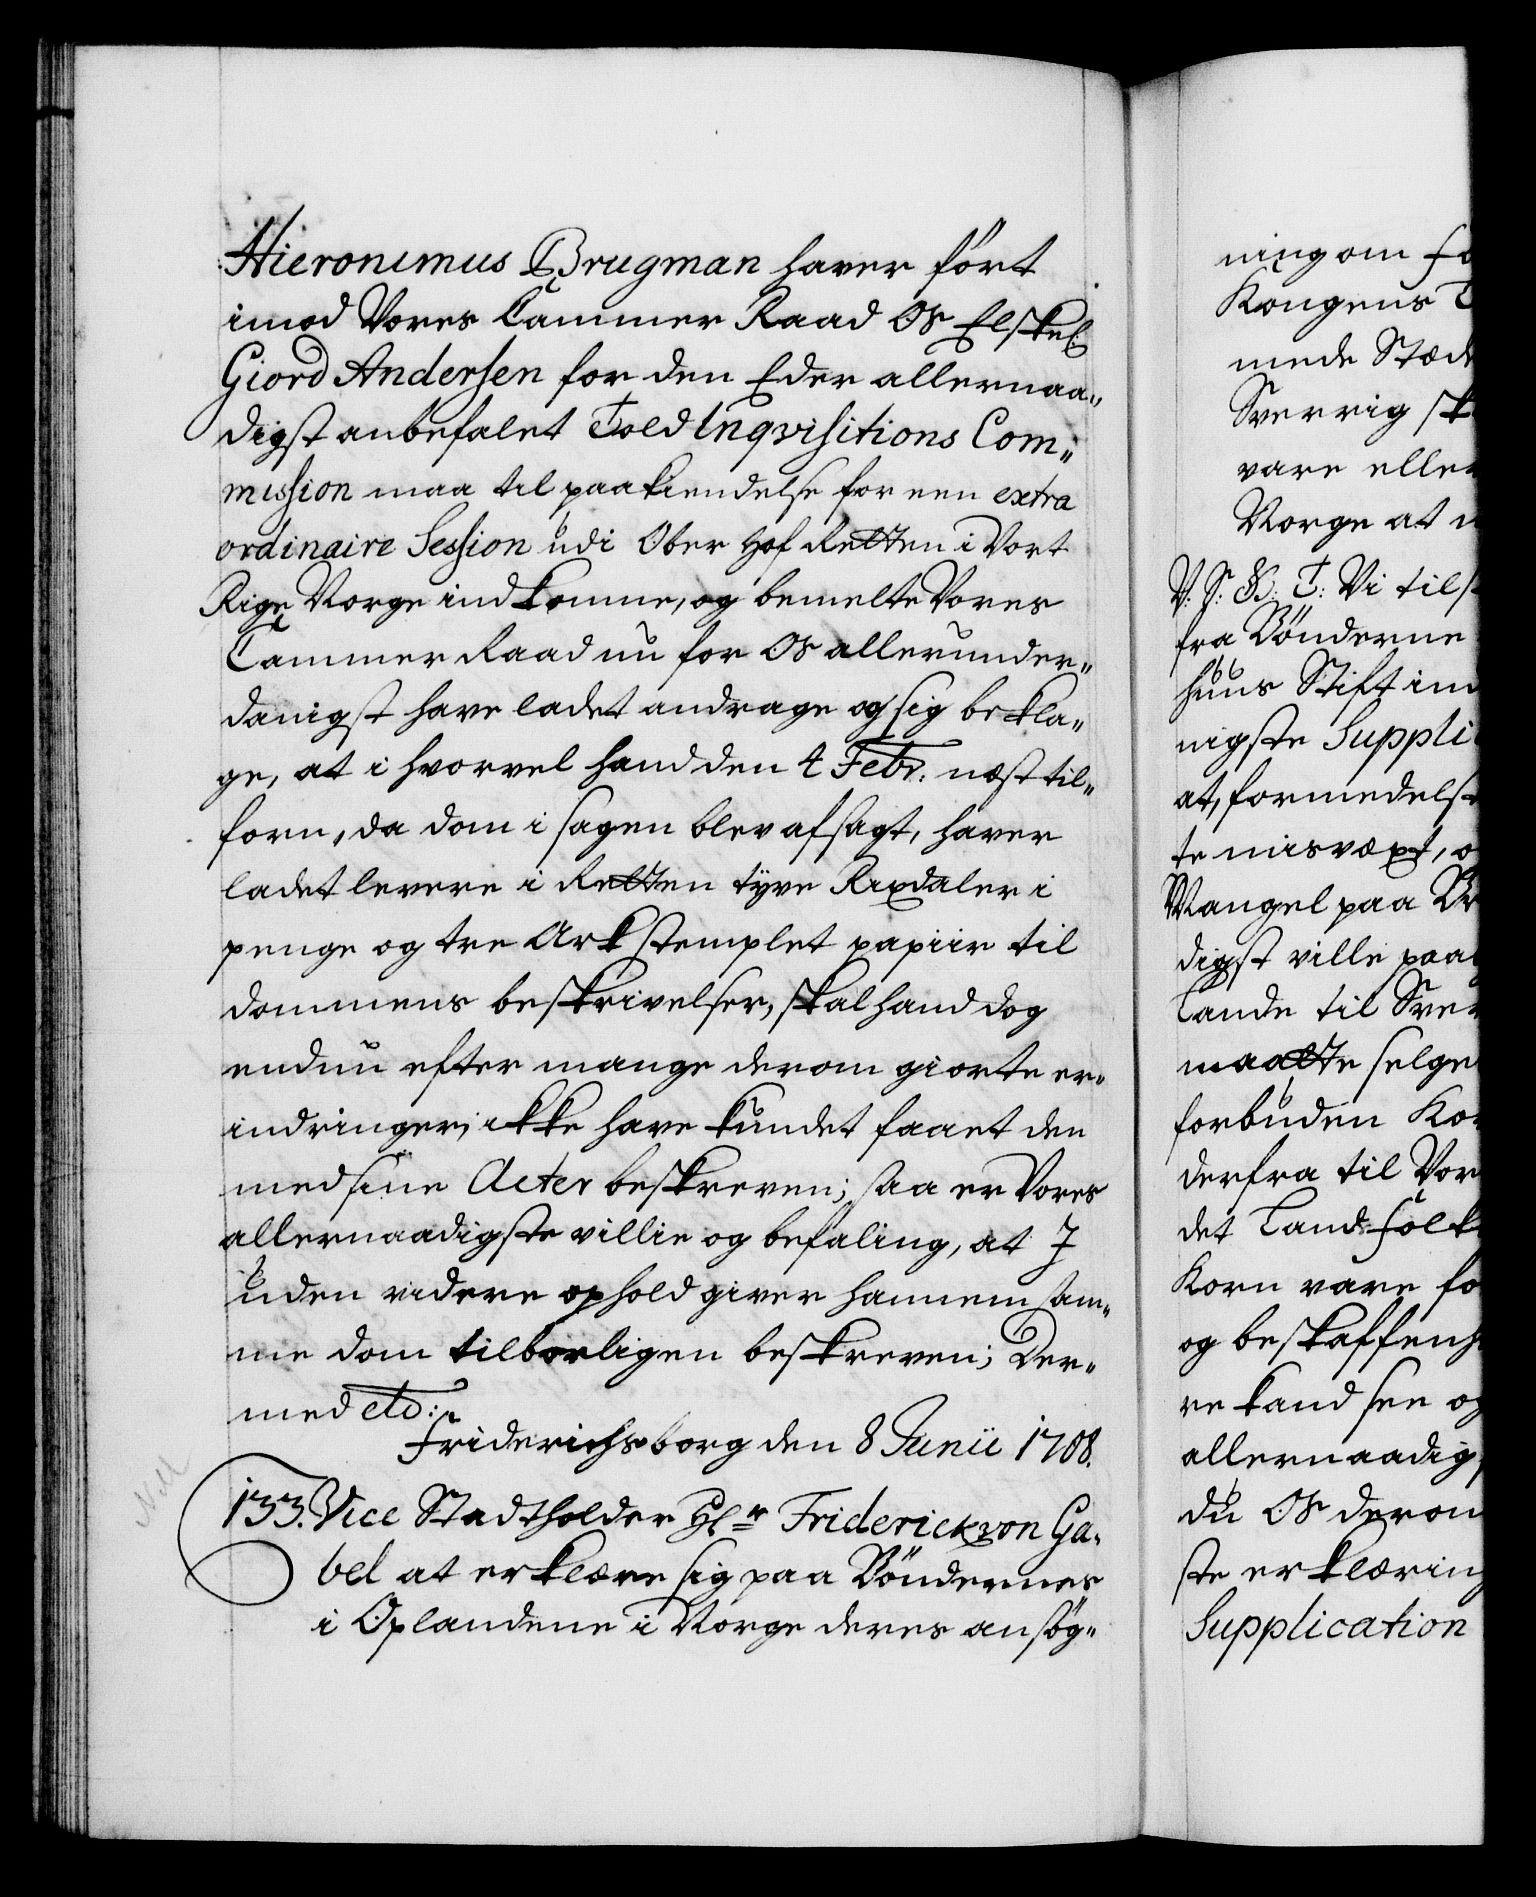 Hieronimus Brugman haver ført
imod Vores Cammer Raad Os Elskel:
Giord Andersen for den Eder allernaa„
digst anbefalet Told Inqvisitions Com„
mission maa til paakiendelse for een extra
ordinaire Session udi Ober Hof Retten i Vort
Rige Norge indkomme, og bemelte Vores
Cammer Raad nu for Os allerunder„
danigst have ladet andrage og sig bekla„
ge, at i hvorvel hand den 4 Febr: næst til„
forn, da dom i sagen blev afsagt, haver
ladet levere i Retten tyve Rixdaler i
penge og tre Ark stemplet papiir til
dommens beskrivelser, skal hand dog
endnu efter mange derom giorte er„
indringer, ikke have kundet faaet den
med sine Acter beskreven; saa er Vores
allernaadigste villie og befaling, at I
uden videre ophold giver hannem sam„
me dom tilbørligen beskreven; Der„
med etc:
Friderichsborg den 8 Junii 1708.
133. Vice Stadtholder Hr Friderick von Ga„
bel at erklære sig paa Bøndernes
i Oplandene i Norge deres ansøg„
ning om
Kongens
mede
Sverrig
vare eller
Norge at
V: S: G: T: Vi
fra Bønderne
huus Stift
nigste
at, formedelst
te misvæxt,
Mangel paa
digst ville
Lande til
maatte selge
forbuden
derfra til
det Land
Korn vare
og
re kand see og
allernaadigst
du Os derom
ste
Supplication